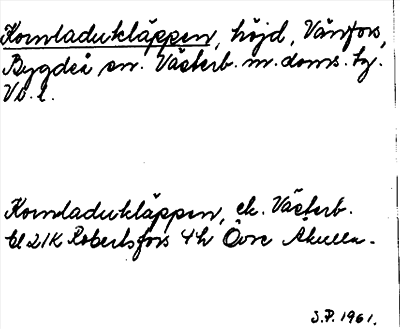 Kornladukläppen, höjd, Vänfors,
Bygdeå sn. Västerb. m. doms. tg.
Vb. l.
Kornladukläppen, ek. Västerb.
bl 21K Robertsfors 4h Övre Åkulla.
S.P. 1961.